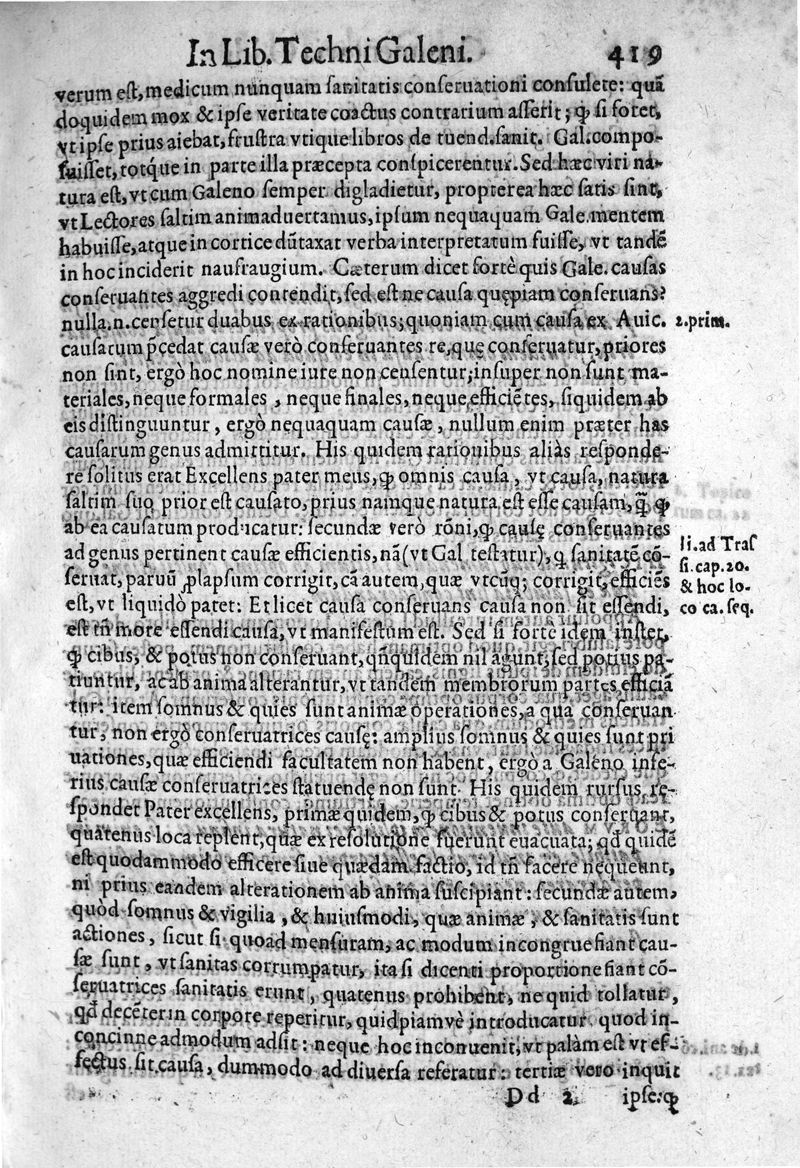 In Lib. Techni Galeni. 419
verum est, medicum nunquam sanitatis conseruationi consulere: quã
doquidem mox & ipse veritate coactus contrarium asserit; ꝙ si foret,
vt ipse prius aiebat, frustra vtique libros de tuend. sanit. Gal. compo-
suisset, totq́ue in parte illa præcepta conspicerentur. Sed hæc viri na-
tura est, vt cum Galeno semper digladietur, propterea hæc satis sint,
vt Lectores saltim animaduertamus, ipsum nequaquam Gale. mentem
habuisse, atque in cortice dũtaxat verba interpretatum fuisse, vt tandẽ
in hoc inciderit naufraugium. Cæterum dicet fortè quis Gale. causas
conseruantes aggredi contendit, sed est ne causa quępiam conseruans?
nulla. n. censetur duabus ex rationibus; quoniam cum causa ex Auic. 2. prim.
causatum p̃cedat causæ verò conseruantes re, quę conseruatur, priores
non sint, ergò hoc nomine iure non censentur; insuper non sunt ma-
teriales, neque formales, neque finales, neque efficiẽtes, siquidem ab
eis distinguuntur, ergò nequaquam causæ, nullum enim præter has
causarum genus admittitur. His quidem rationibus aliàs responde-
re solitus erat Excellens pater meus, ꝙ omnis causa, vt causa, natura
saltim suo prior est causato, prius namque natura est esse causam, q̃ ꝙ
ab ea causatum producatur: secundæ verò rõni, ꝙ causę conseruantes
ad genus pertinent causæ efficientis, nã (vt Gal testatur), ꝙ sanitatẽ cõ- li. ad Tras
seruat, paruũ ꝓlapsum corrigit, cã autem, quæ vtcũq; corrigit, efficiẽs si. cap. 20.
est, vt liquidò patet: Et licet causa conseruans causa non sit essendi, & hoc lo-
est tñ more essendi causa, vt manifestum est. Sed si fortè idem instet, co ca. seq.
ꝙ cibus, & potus non conseruant, qñquidem nil agunt, sed potius pa-
tiuntur, ac ab anima alterantur, vt tandem membrorum partes efficiã
tur: item somnus & quies sunt animæ operationes, a qua conseruan
tur, non ergò conseruatrices causę: amplius somnus & quies sunt pri
uationes, quæ efficiendi facultatem non habent, ergò a Galeno infe-
rius causæ conseruatrices statuendę non sunt. His quidem rursus re-
spondet Pater excellens, primæ quidem, ꝙ cibus & potus conseruant,
quatenus loca replent, quæ ex resolutione fuerunt euacuata; qd quidẽ
est quodammodo efficere siue quædam factio, id tñ facere nequeunt,
ni prius eandem alterationem ab anima suscipiant: secundæ autem,
quòd somnus & vigilia, & huiusmodi, quæ animæ, & sanitatis sunt
actiones, sicut si quoad mensuram, ac modum incongrue fiant cau-
sæ sunt, vt sanitas corrumpatur, ita si dicenti proportione fiant cõ-
seruatrices sanitatis erunt, quatenus prohibent, ne quid tollatur,
qd decẽter in corpore reperitur, quidpiamvè introducatur quod in-
concinne admodum adsit: neque hoc inconuenit, vt palàm est vt ef-
fectus sit causa, dummodo ad diuersa referatur: tertiæ vero inquit
Dd 2 ipse: ꝙ